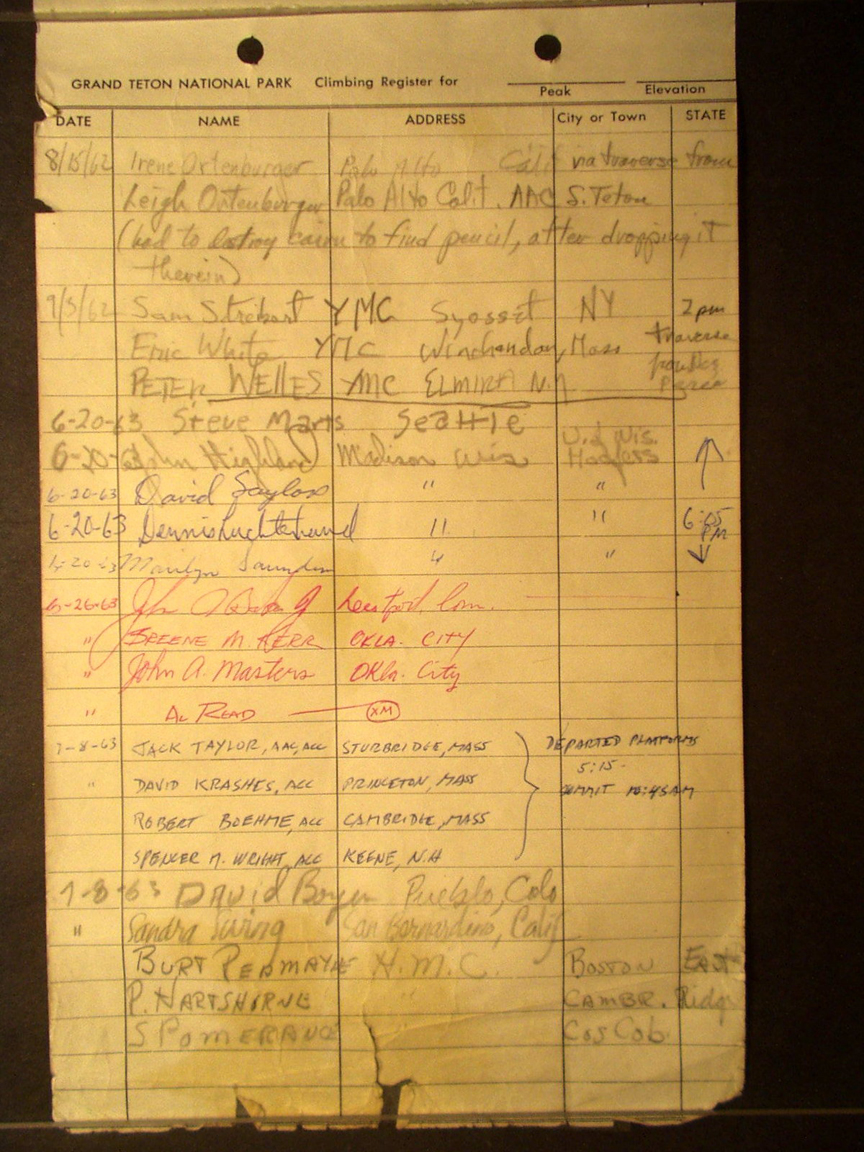 GRAND TETON NATIONAL PARK Climbing Register for
Peak Elevation
DATE NAME ADDRESS City or Town STATE
8/15/62 Irene Ortenburger Palo Alto Calif via traverse from
Leigh Ortenburger Palo Alto Calif. AAC S. Teton
(had to destroy cairn to find pencil, after dropping it
therein)
9/5/62 Sam YMC Syosset NY 2 pm
Eric White YMC Winchendon, Mass traverse
PETER WELLES YMC ELMIRA N.Y.
6-20-63 Steve Marts SeaTTle
U. of Wis.
6-20-63 John Highland Madison Wis Hoofers
6-20-63 David Saylor " "
6-20-63 Dennis " " 6:05 PM
6-20-63 Marilyn Saunders " "
6-26-63 John
" BREENE M. KERR OKLA. CITY
" John A. Masters Okla. City
" AL READ XM
7-8-63 JACK TAYLOR, AAC, ACC STURBRIDGE, MASS DEPARTED PLATFORMS
5:15-
" DAVID KRASHES, ACC PRINCETON, MASS
SUMMIT 10:45AM
ROBERT BOEHME, ACC CAMBRIDGE, MASS
SPENCER M. WRIGHT, ACC KEENE, N.H
7-8-63 DAVid Boyer Pueblo, Colo
" Sandra San Bernardino, Calif
BURT PERMAYNE H.M.C. BOSTON East
P. HARTSHORNE " CAMBR. Ridge
S POMERANCE Cos Cob.